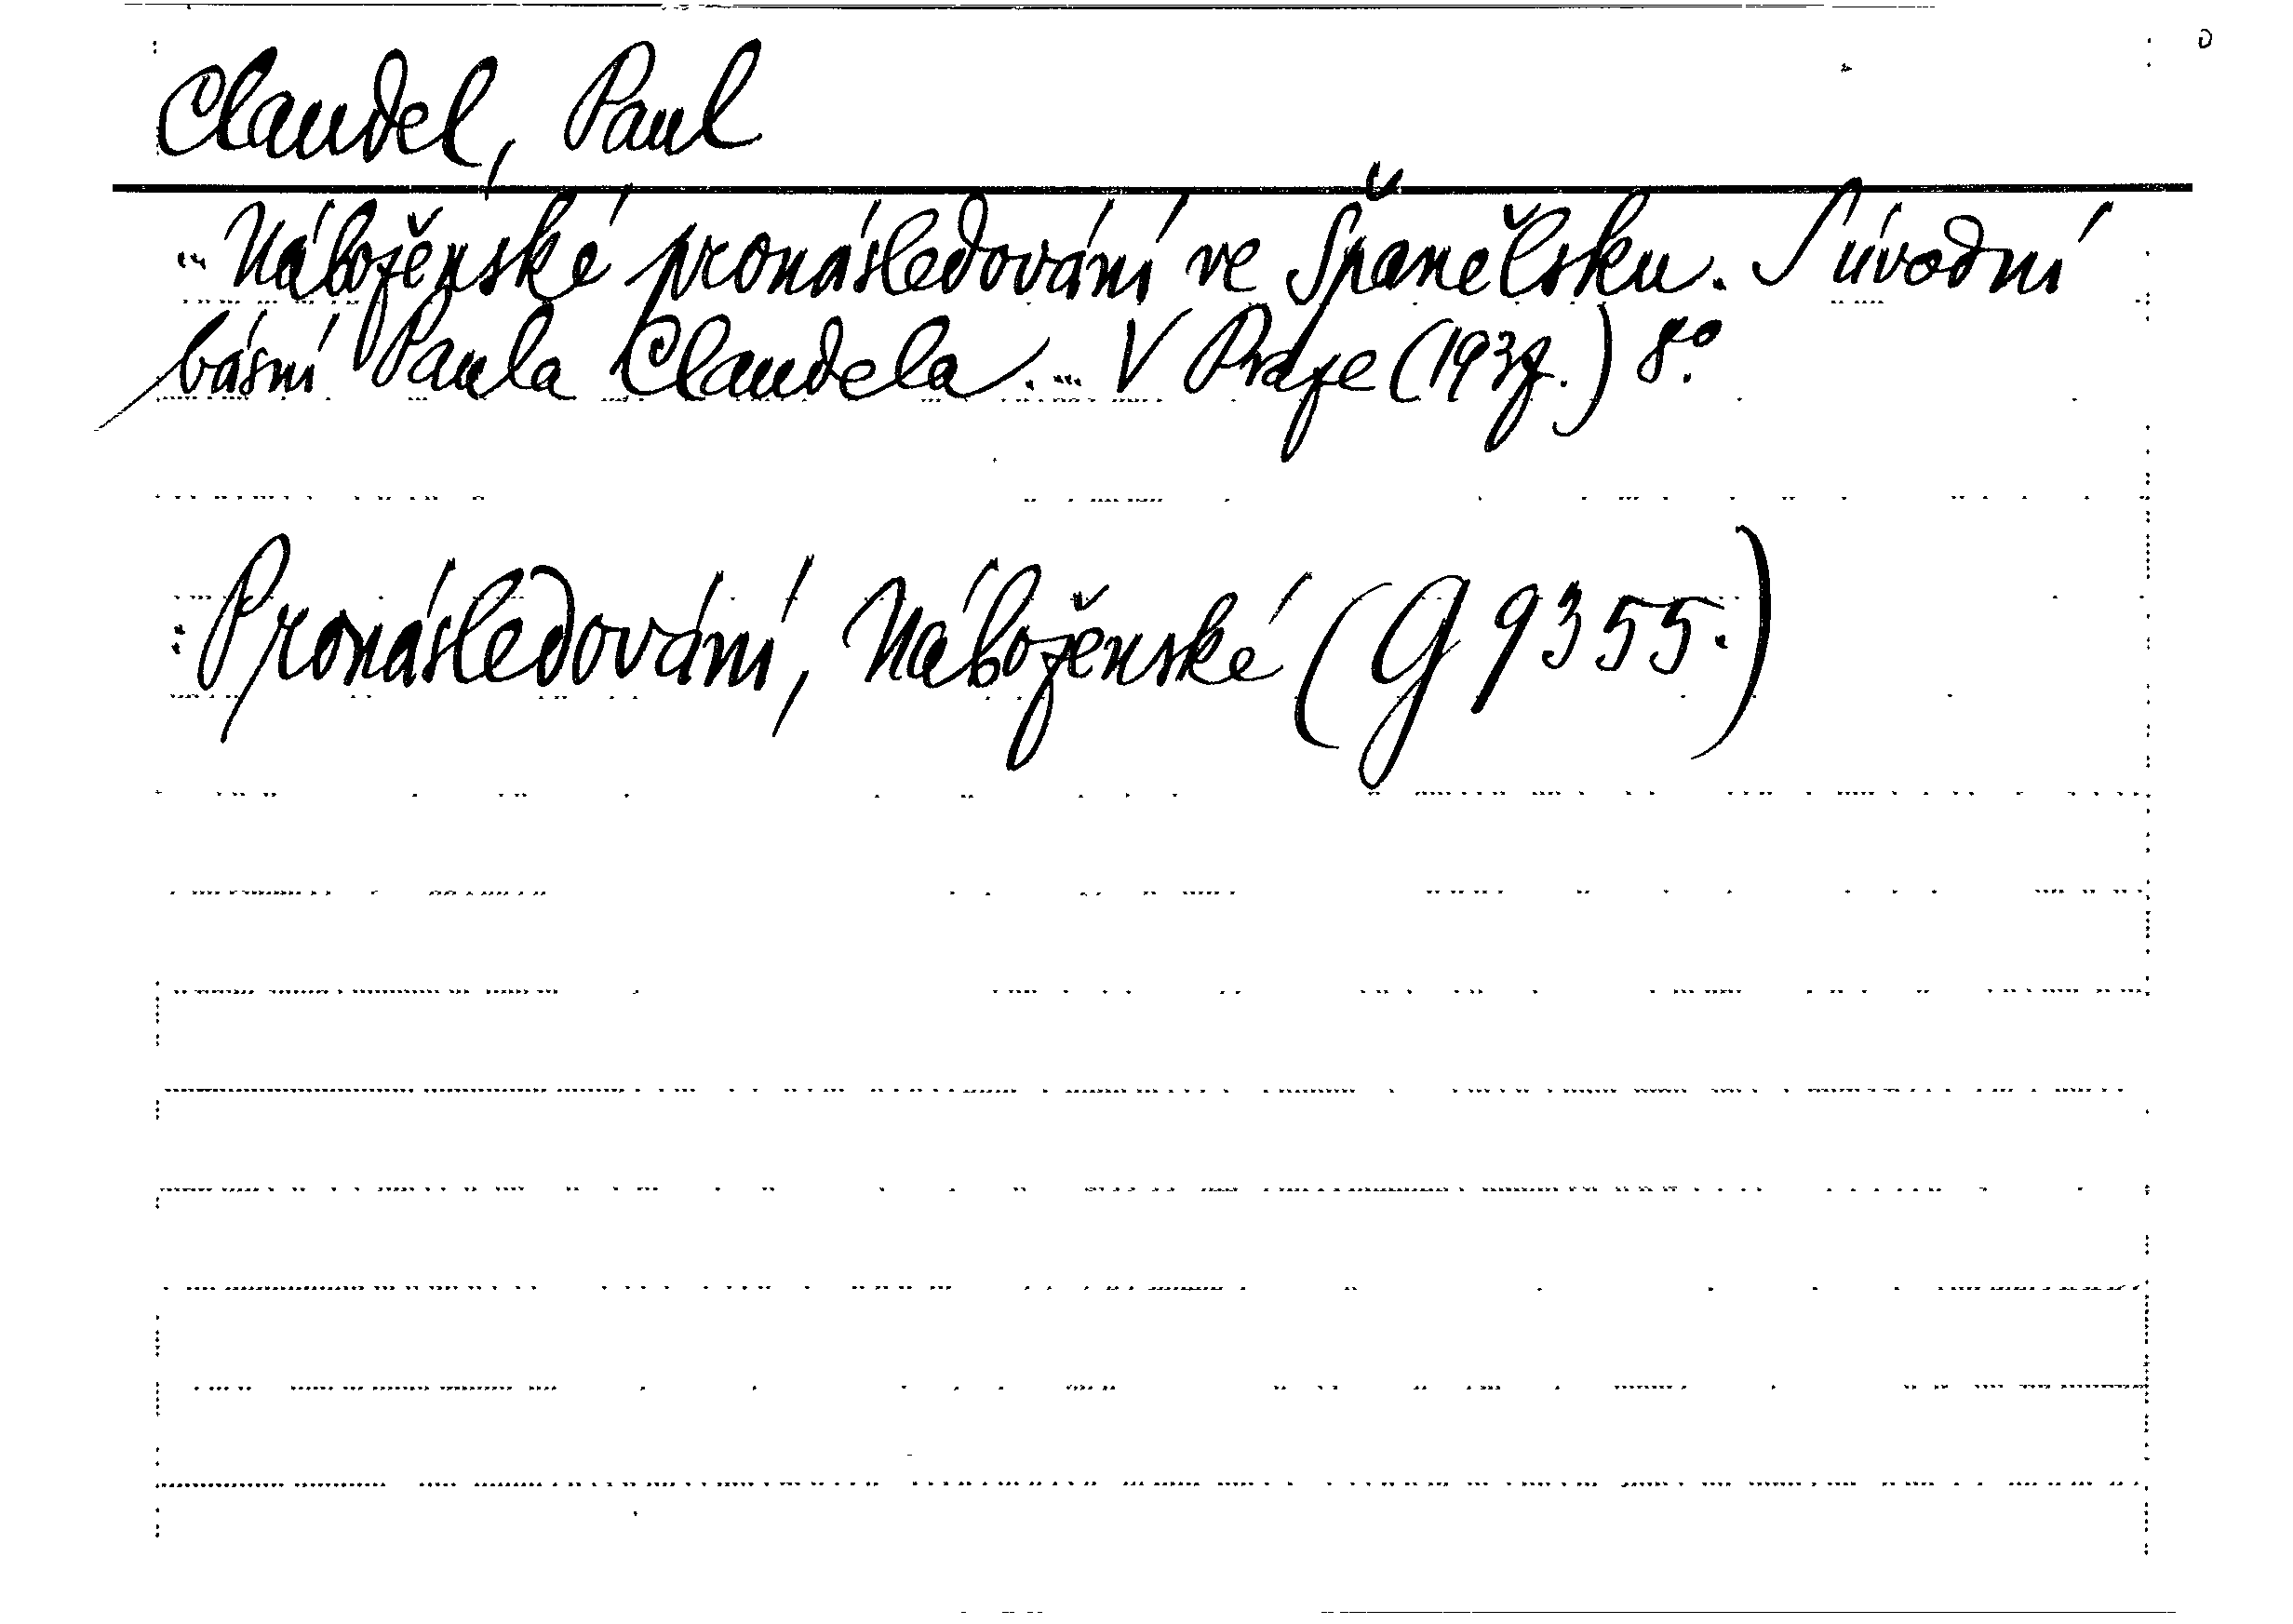 Claudel, Paul
"Náboženské pronásledování ve Španělsku. S úvodní
básní Paula Claudela." V Praze (1937.) 8°.
Pronásledování, Náboženské (G 9355.)